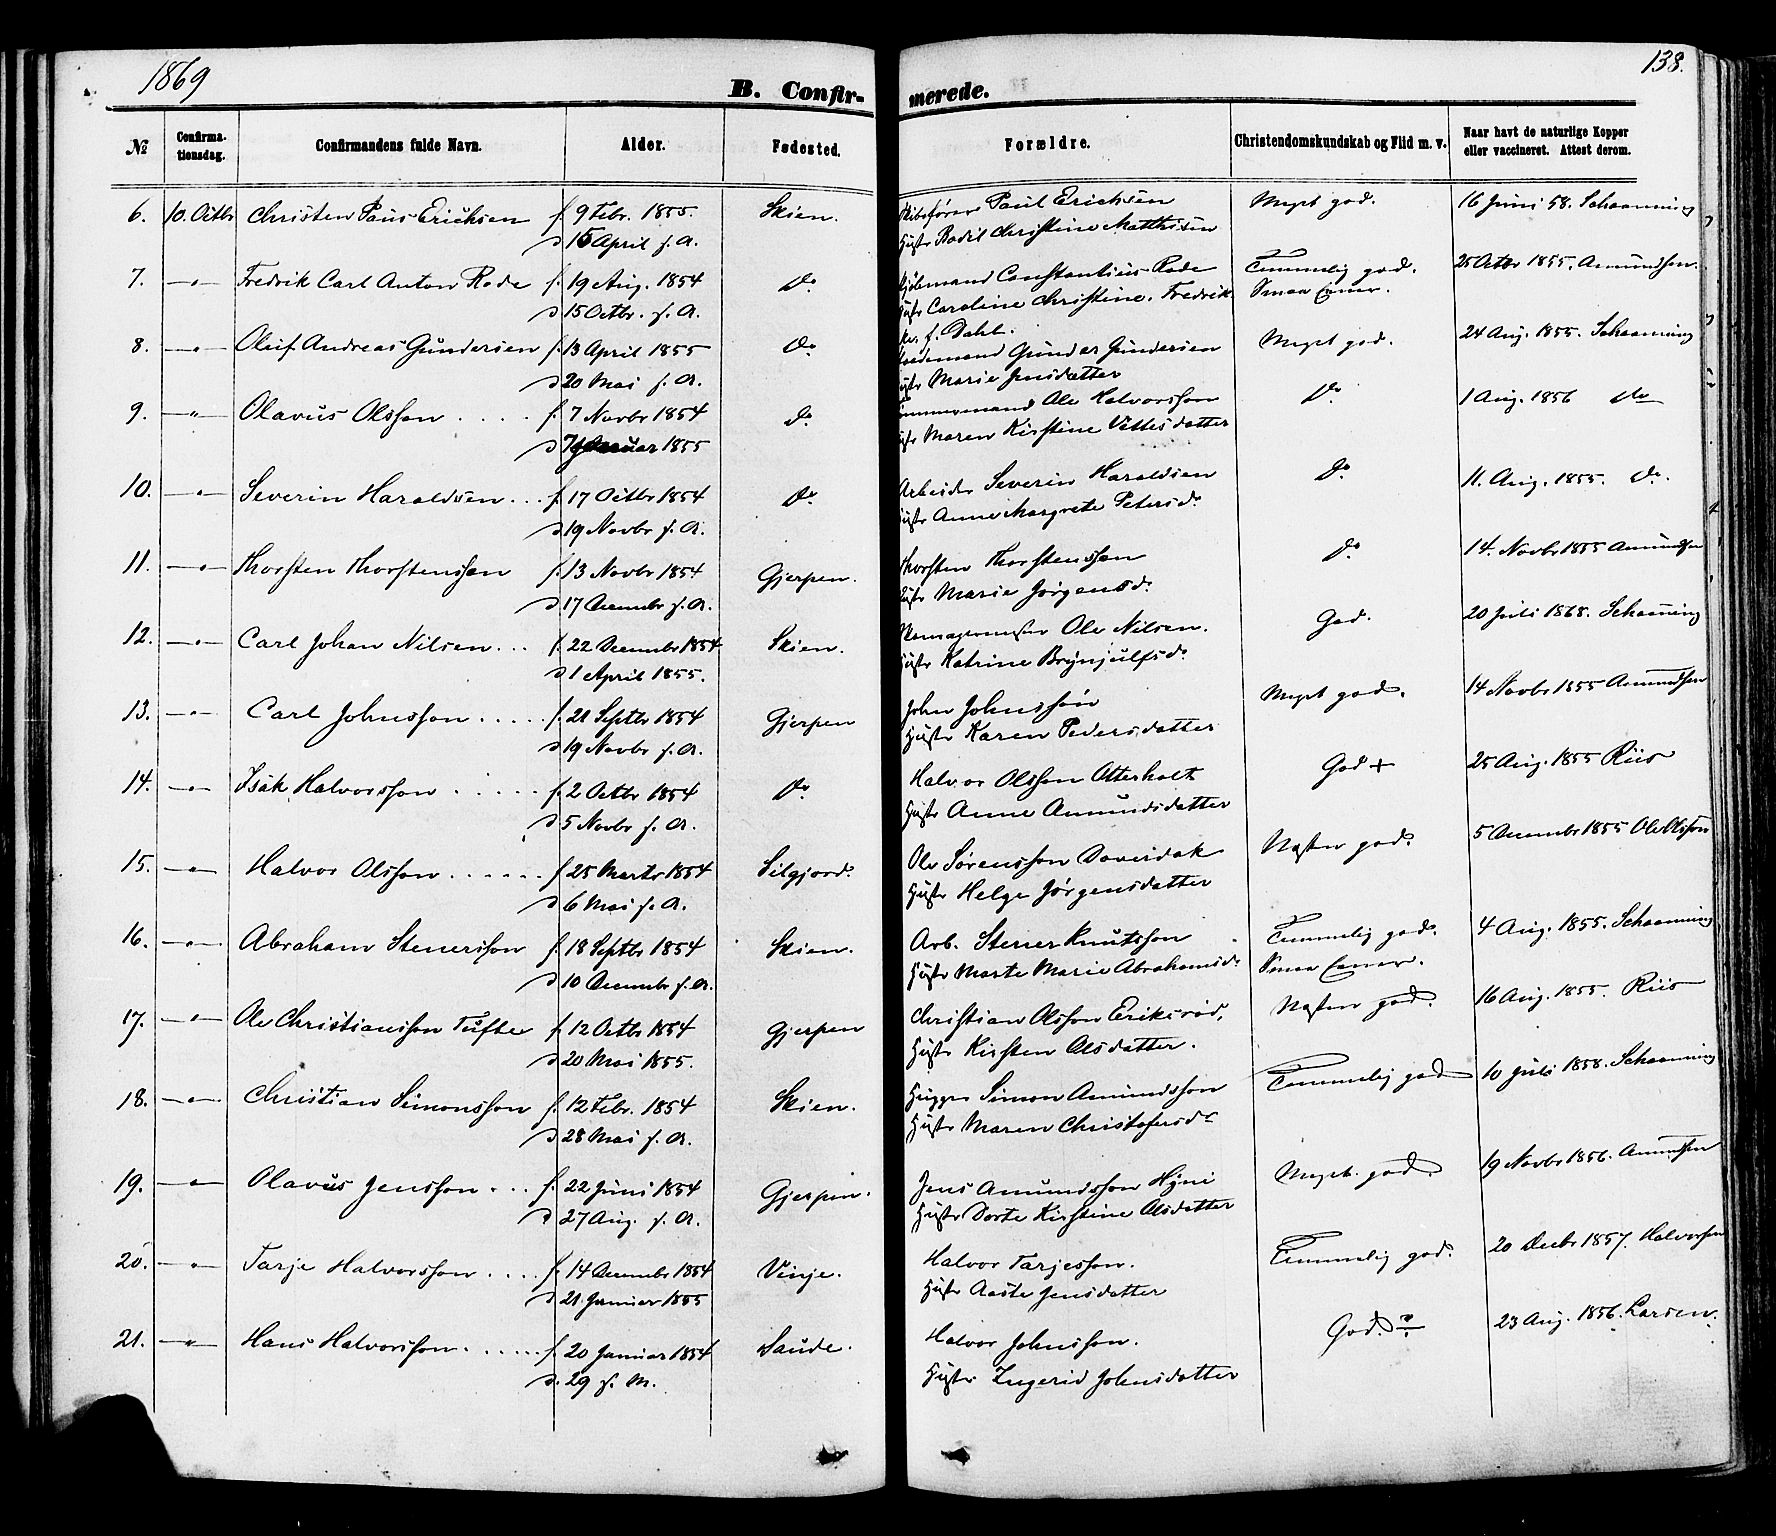 1869
138.
B. Confir-
merede.
№ Confirma-tionsdag. Confirmandens fulde Navn. Alder. Fødested. Forældre. Christendomskundskab og Flid m. v. Naar havt de naturlige Kopper eller vaccineret. Attest derom.
6. 10. Octbr Christen Paus Erichsen f. 9 Febr. 1855. Skien. Skibsfører Paul Erichsen Meget god. 16 Juni 58. Schaanning
d 15 April s. A. Hustr Bodil Christine Matthisen
7. —"— Fredrik Carl Anton Rode f. 19 Aug. 1854 do Constantius Rode Temmelig god. 25 Octbr 1855. Amundsen.
d 15 Octbr. s. A. Hustr Caroline Christine Fredrik Smaa Evner.
f. Dahl.
8. —"— Oluf Andreas Gundersen f. 13 April 1855 do Gunder Gundersen Meget god. 24 Aug. 1855. Schaanning
d 20 Mai s. A. Hustr Marie Jensdatter
9. —"— Olavus Olsson . . . . f. 7 Novbr 1854 do Tømmermand Ole Halvorsson do 1 Aug. 1856 do
d 7 Januar 1855 Hustr Maren Kirstine Vittesdatter
10. —"— Severin Haraldsen . . . f. 17 Octbr 1854 do Arbeider Severin Haraldsen do 11. Aug. 1855. do.
d 19 Novbr s. A. Hustr Anne Margrete Petersd.
11. —"— Thorsten Thorstenssen f. 13 Novbr 1854 Gjerpen. Thorsten Thorstenssen do 14. Novbr 1855 Amundsen
d 17 Decembr s. A. Hustr Marie Jørgensd.
12. —"— Carl Johan Nilsen . . . f. 22 Decembr 1854 Skien. Ole Nilsen. God. 20 Juli 1868. Schaanning
d 1 April 1855. Hustr Katrine Brynjulfsd.
13. —"— Carl Johnsson . . . . . f. 21 Septbr 1854 Gjerpen John Johnssøn Meget god. 14 Novbr 1855 Amundsen
d 19 Novbr s. A. Hustr Karen Pedersdatter
14. —"— Isak Halvorsson . . . . . f. 2 Octbr 1854 do Halvor Olsson Otterholt God + 25 Aug. 1855 Riis
d 5 Novbr s. A. Hustr Anne Amundsdatter
15. —"— Halvor Olsson . . . . . . f 25 Marts 1854 Silgjord. Ole Sørensson Næsten god. 5 Decembr 1855 Ole Olsson
d 6 Mai s. A. Hustr Helge Jørgensdatter
16. —"— Abraham Stenersson f. 18 Septbr 1854 Skien. Arb. Stener Knutsson Temmelig god. 4 Aug. 1855. Schaanning
d 10 Decembr s. A. Hustr Marte Marie Abrahamsd. Smaa Evner.
17. —"— Ole Christiansson Tufte f 12 Octbr 1854 Gjerpen Christian Olsson Eriksrød, Næsten god. 16 Aug. 1855. Riis
d 20 Mai 1855. Hustr Kirsten Olsdatter.
18. —"— Christian Simonsson f. 12 Febr. 1854 Skien. Simon Amundsson Temmelig god 10 Juli 1858. Schaanning
d 28 Mai s. A. Hustr Maren Christofersd.
19. —"— Olavus Jensson . . . f. 22 Juni 1854 Gjerpen. Jens Amundsson Hyni Meget god. 19 Novbr 1856. Amundsen
d 27 Aug. s. A. Hustr Dorte Kirstine Olsdatter
20. —"— Tarje Halvorsson . . . . f. 14 Decembr 1854 Vinje. Halvor Tarjesson. Temmelig god. 20 Decbr 1857. Halvorsen
d 21 Januar 1855 Hustr Aaste Jensdatter
21. —"— Hans Halvorsson . . . . . . f. 20 Januar 1854 Saude. Halvor Johnsson. God. 23 Aug. 1856. Larsen.
d. 29 s. M. Hustr Ingerid Johnsdatter